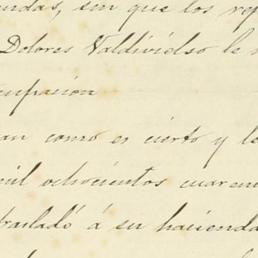 sin que los
Dolores Valdivielso le
cupacion
an como es cierto y le
mil ochocientos cuaren
traslado á su hacienda